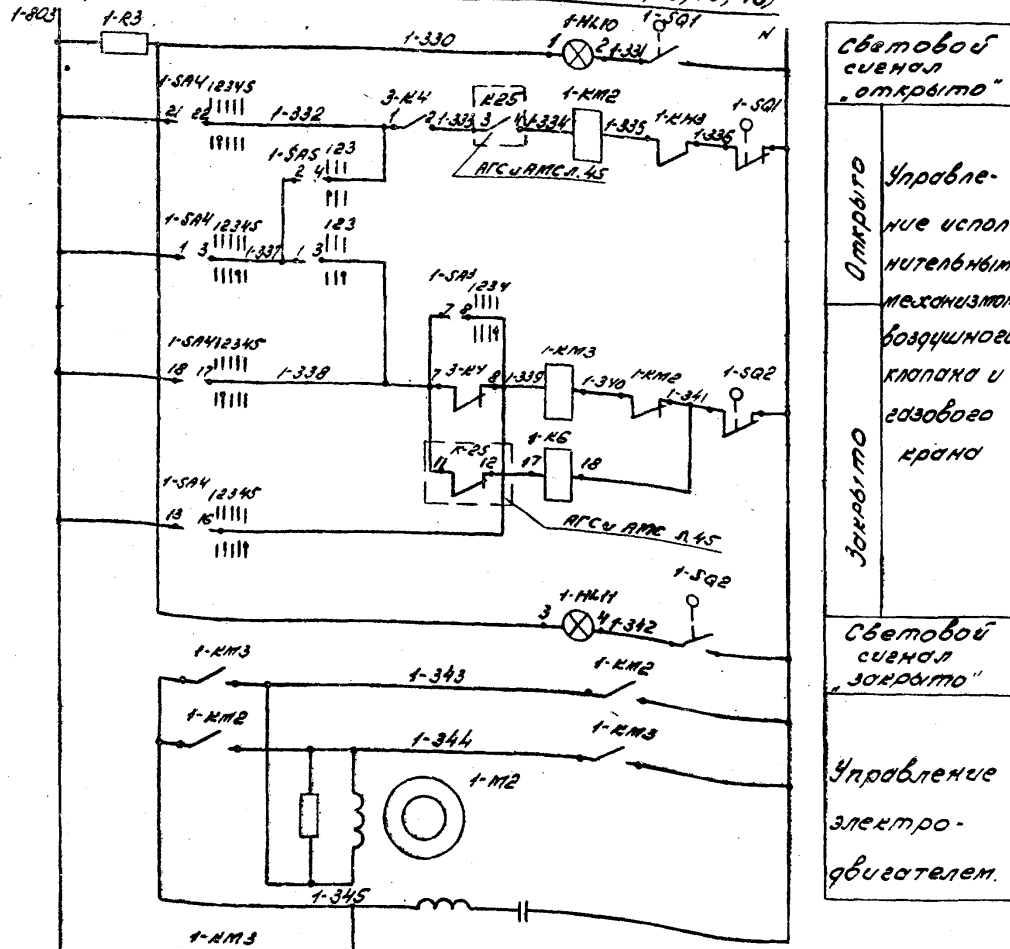 1-803
1-R3
1-330
1-HL10
1
2
1-331
1-SQ1
N
1-SA4
12345
21
22
1-332
3-К4
1
2
1-333
К25
3
4
1-334
1-КМ2
1-335
1-КМ3
1-336
1-SQ1
АГС и АМС л.45
1-SA5
123
2
4
1-SA4
12345
1
3
1-337
123
1
3
1-SA3
1234
7
8
1-SA4
12345
18
17
1-338
3-К4
7
8
1-339
1-КМ3
1-340
1-КМ2
1-341
1-SQ2
К-25
11
12
17
1-К6
18
1-SA4
12345
13
16
АГС и АМС л.45
1-HL11
3
4
1-342
1-SQ2
1-КМ3
1-343
1-КМ2
1-КМ2
1-344
1-КМ3
1-М2
1-345
1-КМ3
Световой
сигнал
„открыто"
Открыто
Закрыто
Управле-
ние испол
нительным
механизмом
воздушного
клапана и
газового
крана
Световой
сигнал
„закрыто"
Управление
электро-
двигателем.